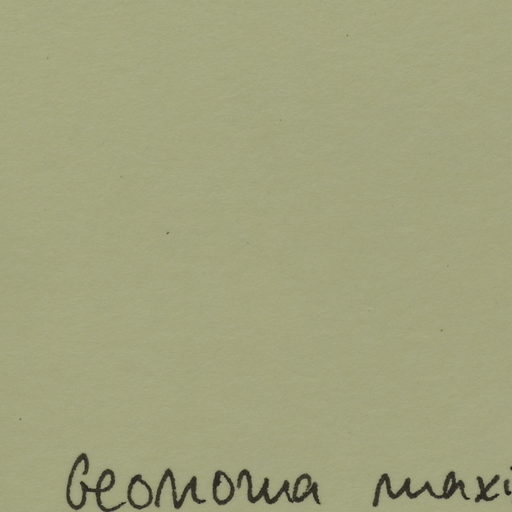 Geonoma maxi